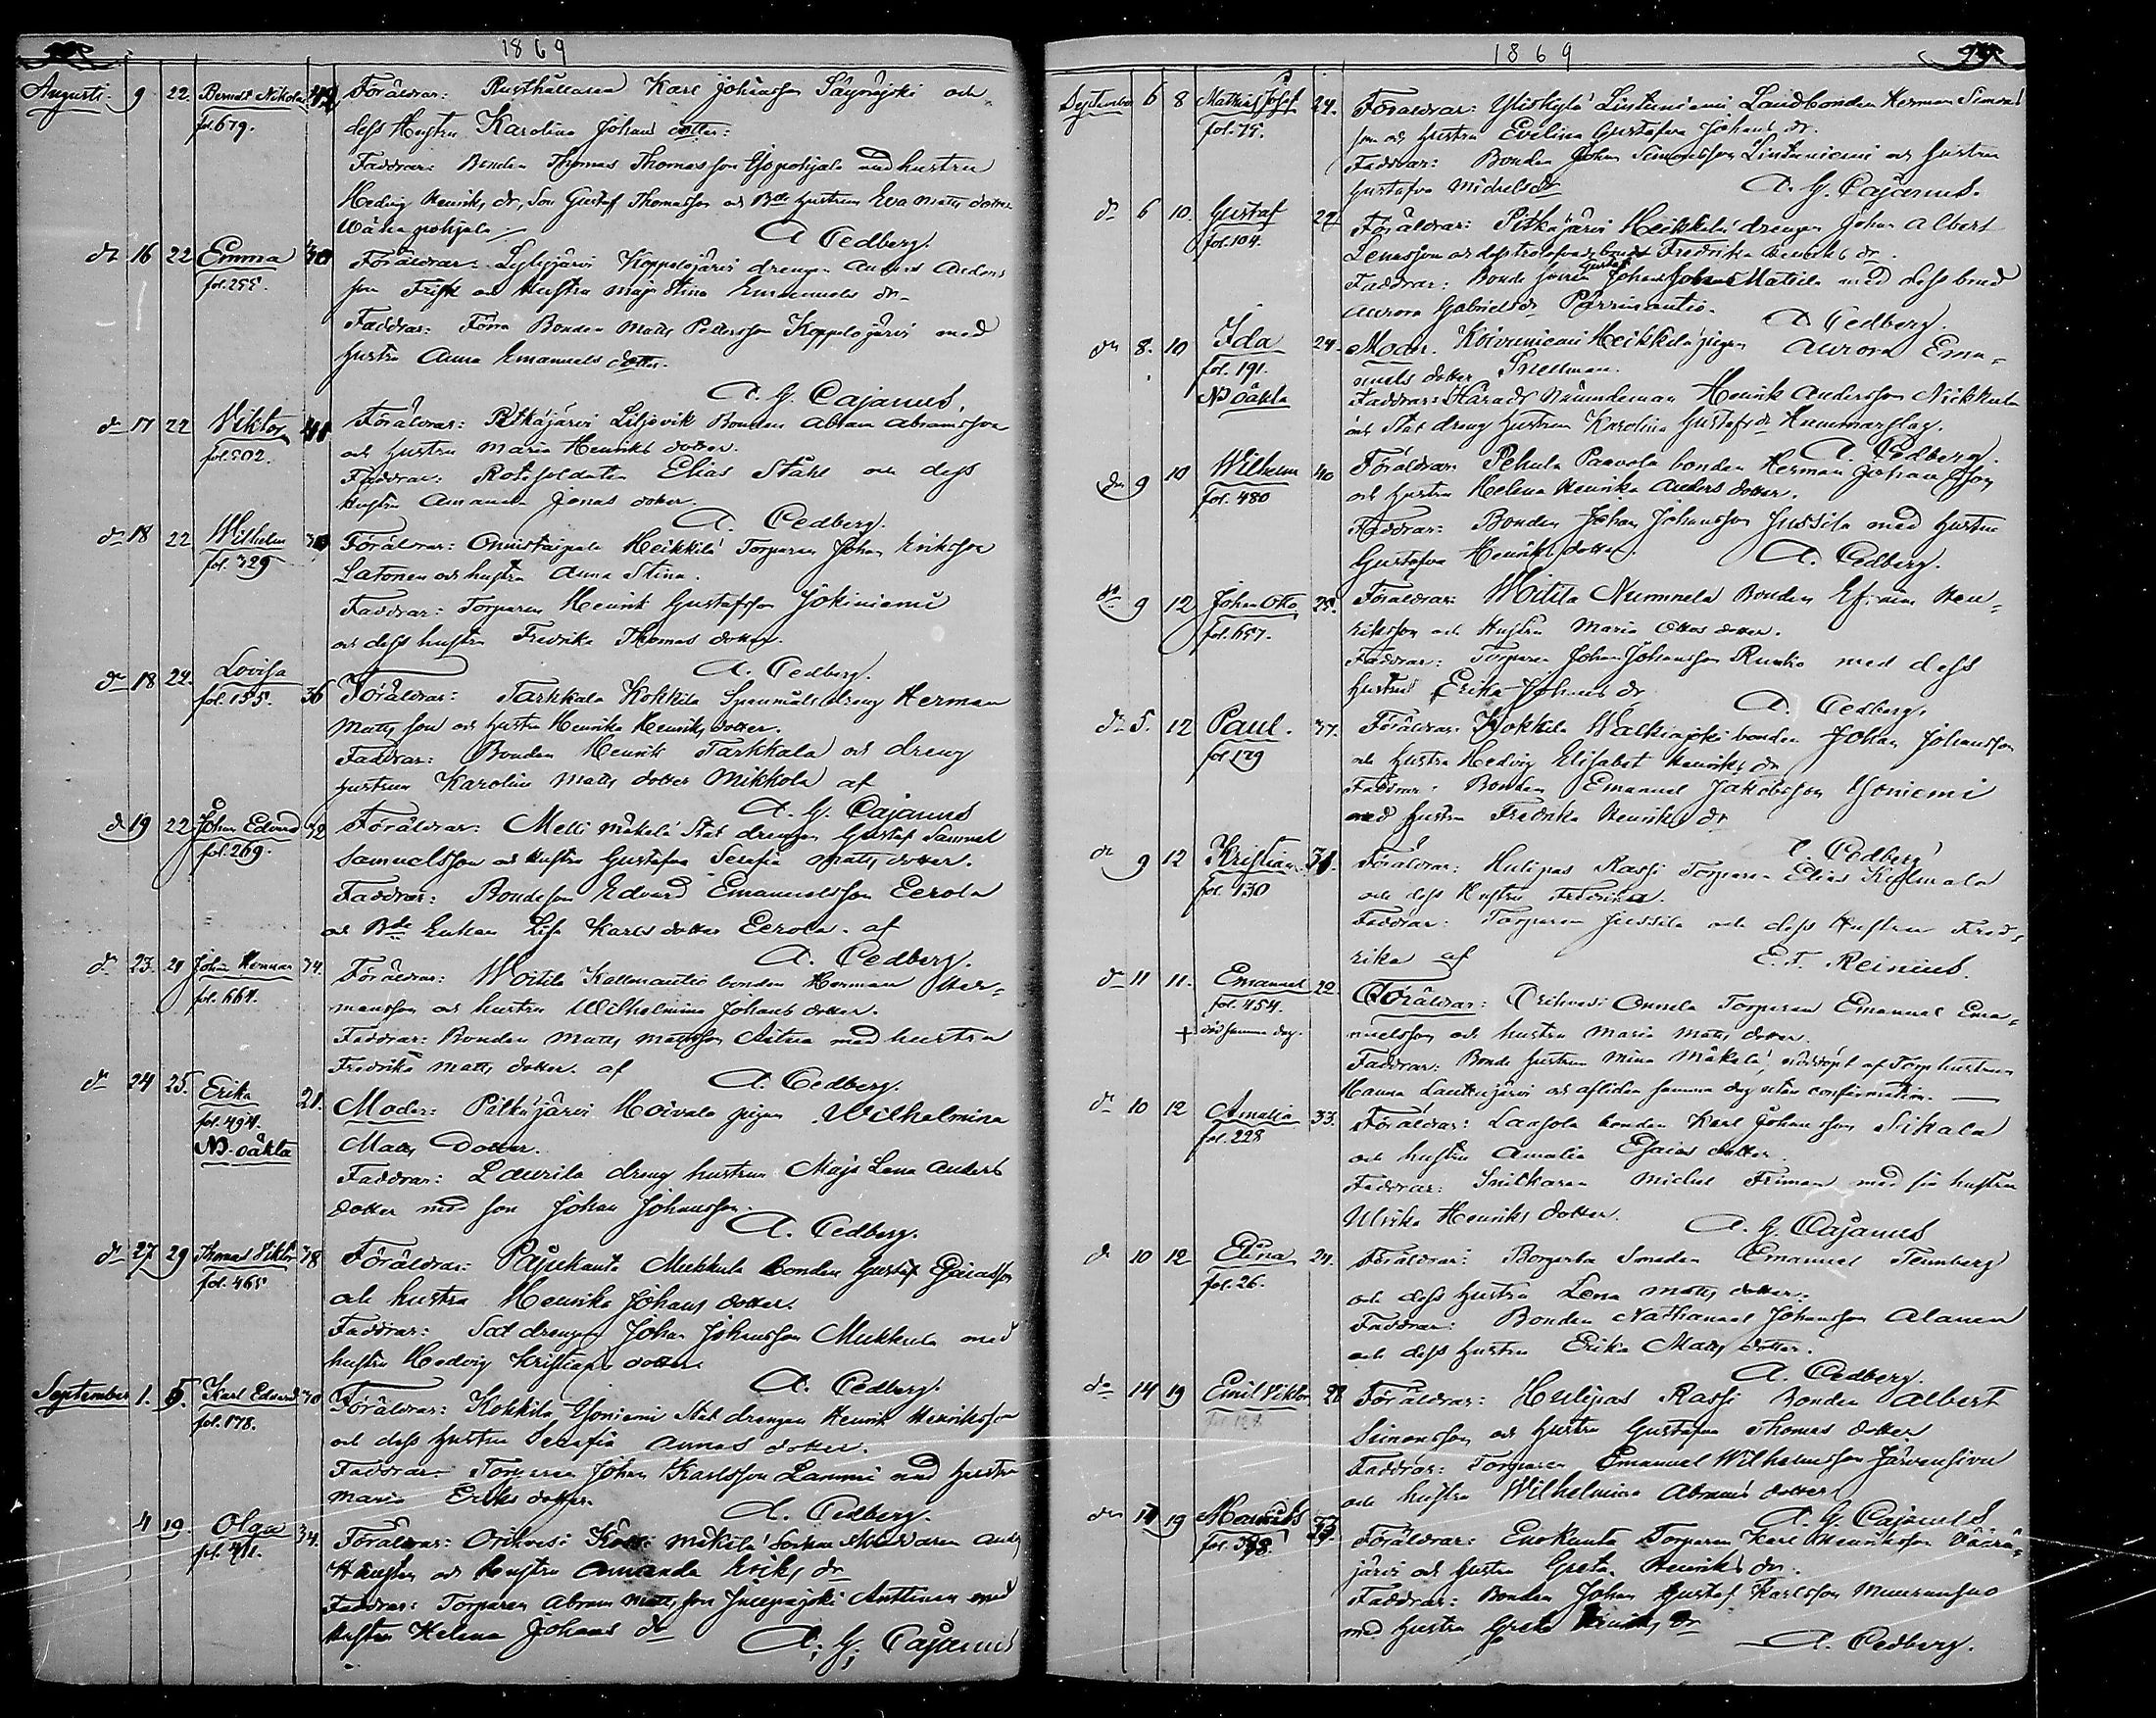 1869
Augusti 9 22. Berndt Nikolai 42 Föräldrar: Rusthållaren Karl Johansson Säynäjoki och
fol. 679. dess Hustru Karolina Johans dotter:
Faddrar: Bonden Thomas Thomasson Yspohjala med hustru
Hedvig Henriks dr, Son Gustaf Thomasson och Bde hustrun Eva Matts dotter
Wähäpohjala
A Cedberg.
do 16 22 Emma 30 Föräldrar: Koppelojärvi drengen Anders Anders
fol. 255. son Frisk och Hustru Maja Stina Emanuels dr
Faddrar: Förra Bonden Matts Pettersson Koppelojärvi med
hustru Anna Emanuels dotter.
A. G. Cajanus.
do 17 22 Viktor 41 Föräldrar: Pitkäjärvi Liljevik Bonden Abram Abramsson
fol. 502. och hustru Maria Henriks dotter.
Faddrar: Rotesoldaten Elias Ståhl och dess
hustru Amanda Jonas dotter
A. Cedberg.
do 18 22 Wilhelm Föräldrar: Onnistaipale Heikkilä Torparen Johan Eriksson
fol. 329 Latonen och hustru Anna Stina.
Faddrar: Torparen Henrik Gustafsson Jokiniemi
och dess hustru Fredrika Thomas dotter.
A. Cedberg.
do 18 22. Lovisa Föräldrar: Tarkkala Kokkila Spanmåls dreng Herman
fol. 155. 36
Matts son och hustru Henrika Henriks dotter.
Faddrar: Bonden Henrik Tarkkala och dreng
hustrun Karolina Matts dotter Mikkola af
A. G. Cajanus
do 19 22. Johan Edvard 32 Föräldrar: Melli Mäkelä Stat drengen Gustaf Samuel
fol. 269. Samuelsson och Hustru Gustafva Serafia Matts dotter.
Faddrar: Bondeson Edvard Emanuelsson Eerola
och Bde Enkan Lisa Karls dotter Eerola. af
A. Cedberg.
do 23. 24 Johan Herman 34. Föräldrar: Woitila Kallenautio bonden Herman Her-
fol. 664. mansson och hustru Wilhelmina Johans dotter.
Faddrar: Bonden Matts Mattsson Aitua med hustru
Fredrika Matts dotter. af
A. Cedberg.
do 24 25. Erika 21. Moder: Pitkäjärvi Hoivala pigan Wilhelmina
fol. 494. Matts Dotter.
NB. oäkta Faddrar: Laurila dreng hustrun Maja Lena Anders
dotter med son Johan Johansson.
A. Cedberg.
do 27 29 Thomas Viktor 38 Föräldrar: Pajukanta Mukkula Bonden Gustaf Esaiasson
fol. 465 och hustru Henrika Johans dotter.
Faddrar: Stat drengen Johan Johansson Mukkula med
hustru Hedvig Kristians dotter.
A. Cedberg.
September 1. 5. Karl Edvard 30 Föräldrar: Kokkila Isoniemi Stat drengen Henrik Henriksson
fol. 178. och dess hustru Serafia Annas dotter.
Faddrar: Torparen Johan Karlsson Lammi med hustru
Maria Eriks dotter.
A. Cedberg.
4 19. Olga 34. Föräldrar: Orihvesi Mäkilä Socken Skräddaren And.
fol. 411. och hustru Amanda Eriks dr
Faddrar: Torparen Abram Mattsson Anttinen med
hustru Helena Johans dr
A. G. Cajanus
1869
September 6 8 Mathias Josef 24. Föräldrar: Yliskylä Lintuniemi Landbonden Herman Simons
fol. 75. son och hustru Evelina Gustafva Johans dr.
Faddrar: Bonden Johan Simonsson Lintuniemi och hustru
Gustafva Michelsdr
A. G. Cajanus.
do 6 10. Gustaf 22 Föräldrar: Pitkäjärvi Heikkilä drengen Johan Albert
fol. 104. Lenasson och dess trolofvade brud Fredrika Henriks dr.
Faddrar: Bonde sonen Gustaf Johans Mattila med dess brud
Aurora Gabrielsdr
A Cedberg.
do 8. 10 Ida 24. Moder. Koivuniemi Heikkilä pigan Aurora Ema-
fol. 191. nuels dotter Snellman.
NB oäkta Faddrar: Härads Nämndeman Henrik Andersson Nikkula
och Stat dreng hustrun Karolina Gustafs dr Hammarslag.
A. Cedberg.
do 9 10 Wilhelm 40 Föräldrar: Pehula Paavola bonden Herman Johansson
fol. 480 och hustru Helena Henrika Anders dotter.
Faddrar: Bonden Johan Johansson Jussila med hustru
Gustafva Henriks dotter.
A. Cedberg.
do 9 12 Johan Otto 28. Föräldrar: Woitila Nummela Bonden Efraim Hen-
fol. 657. riksson och Hustru Maria Ottos dotter.
Faddrar: Torparen Johan Johansson Runtio med dess
hustru Erika Johans dr
A. Cedberg.
do 5. 12 Paul. 37. Föräldrar: Kokkila Walkiajoki bonden Johan Johansson
fol 179 och hustru Hedvig Elisabet Henriks dr
Faddrar: Bonden Emanuel Jakobsson Isoniemi
med hustru Fredrika Henriks dr
A. Cedberg
do 9 12 Kristian 31. Föräldrar: Hulipas Rassi Torparen Elias Kylmälä
fol. 130 och dess Hustru Fredrika.
Faddrar: Torparen Jussila och dess Hustru Fred-
rika af
E. F. Reinius.
do 11 11. Emanuel 22 Föräldrar: Orihvesi Onnela Torparen Emanuel Ema-
fol. 454. nuelsson och hustru Maria Matts dotter.
+ död samma dag. Faddrar: Bonde hustrun Mina Mäkelä, nöddöpt af Torp hustrun
Hanna Lautajärvi och afliden samma dag utan confirmation. —
do 10 12 Amalia 33. Föräldrar: Laasola bonden Karl Johansson Sihala
fol. 228 och hustru Amalia Esaias dotter.
Faddrar: Snickaren Michel Friman med sin hustru
Ulrika Henriks dotter.
A. G. Cajanus
do 10 12 Elina 24. Föräldrar: Borgarbo Smeden Emanuel Tennberg
fol. 26. och dess hustru Lena Matts dotter.
Faddrar: Bonden Nathanael Johansson Alanen
och dess hustru Erika Matts dotter.
A. Cedberg.
do 14 19 Emil Viktor 28 Föräldrar: Hulipas Rassi Bonden Albert
Simonsson och hustru Gustafva Thomas dotter
Faddrar: Torparen Emanuel Wilhelmsson Järvensivu
och hustru Wilhelmina Abrams dotter
A. G. Cajanus
do 19 Föräldrar: Enokunta Torparen Karl Henriksson Väärä-
järvi och hustru Greta Henriks dr.
Faddrar: Bonden Johan Gustaf Karlsson
med hustru Greta Henriks dr
A. Cedberg.